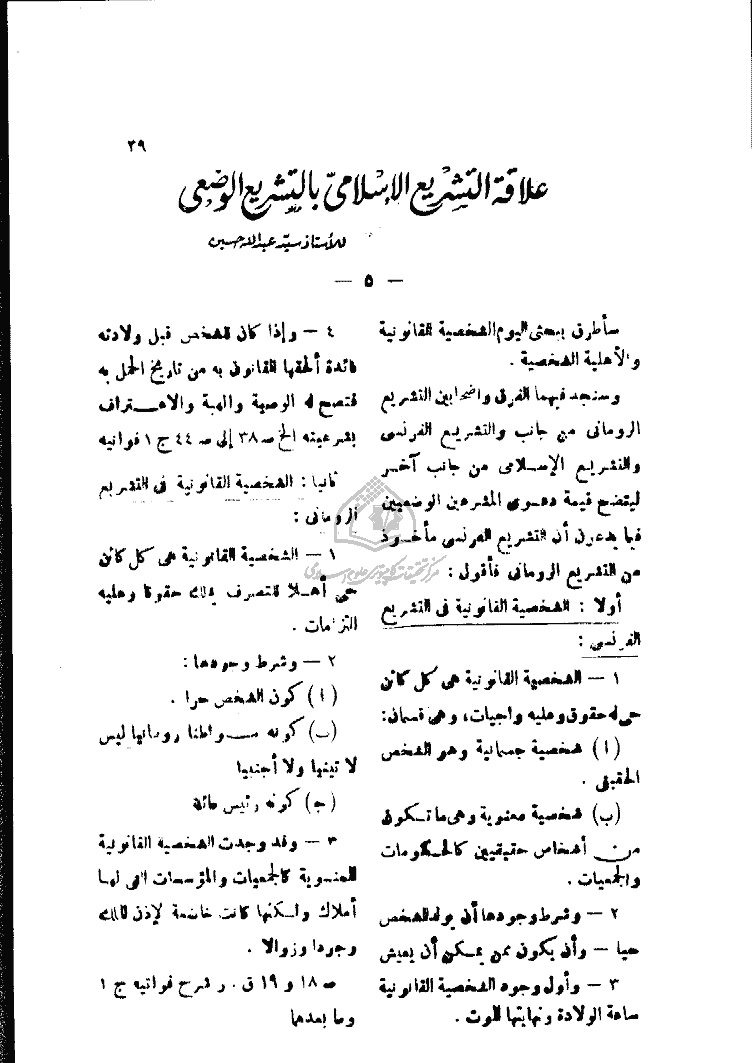 ٣٩
علاقة التشريع الإسلامى بالتشريع الوضعى
للأستاذ سيد عبد الله حسين
— ٥ —
سأطرق ببحثى اليوم الشخصية القانونية
والأهلية الشخصية .
وسنجد فيهما الفرق واضحا بين التشريع
الرومانى من جانب والتشريع الفرنسى
والتشريع الإسلامى من جانب آخر
ليتضح قيمة دعوى المشرعين الوضعيين
فيما يدعون أن التشريع الفرنسى مأخوذ
من التشريع الرومانى فأقول :
أولا : الشخصية القانونية فى التشريع
الفرنسى :
١ — الشخصية القانونية هى كل كائن
حى له حقوق وعليه واجبات، وهى قسمان:
(ا) شخصية جسمانية وهو الشخص
الحقيقى .
(ب) شخصية معنوية وهى ما تتكون
من أشخاص حقيقيين كالحكومات
والجمعيات .
٢ — وشرط وجودها أن يولد الشخص
حيا — وأن يكون ممن يمكن أن يعيش
٣ — وأول وجود الشخصية القانونية
ساعة الولادة ونهايتها الموت .
٤ — وإذا كان لشخص قبل ولادته
فائدة ألحقها القانون به من تاريخ الحمل به
فتصح له الوصية والهبة والاعتراف
بشرعيته الخ صـ ٣٨ إلى صـ ٤٤ ج ١ فوانيه
ثانيا : الشخصية القانونية فى التشريع
الرومانى :
١ — الشخصية القانونية هى كل كائن
حى أهلا للتصرف يملك حقوقا وعليه
التزامات .
٢ — وشرط وجودها :
(ا) كون الشخص حرا .
(ب) كونه مواطنا رومانيا ليس
لاتينيا ولا أجنبيا
(ج) كونه رئيس عائلة
٣ — وقد وجدت الشخصية القانونية
المعنوية كالجمعيات والمؤسسات التى لها
أملاك ولكنها كانت خاضعة لإذن المالك
وجودا وزوالا .
صـ ١٨ و ١٩ ق . ر شرح فوانيه ج ١
وما بعدها
مركز تحقيقات كامپيوترى علوم اسلامى